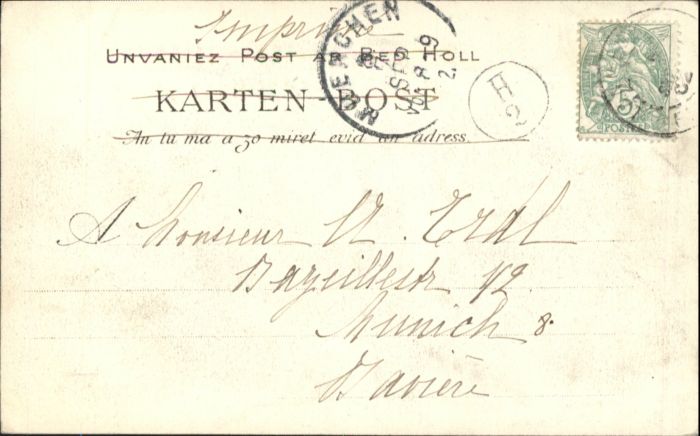 Imprimé
UNVANIEZ POST AR BED HOLL
KARTEN-BOST
An tu ma a zo miret evid an adress.
MUENCHEN
SEP
H
2
5
POSTES
A Monsieur A. Erdl
Bazeillestr 1/2
Munich 8.
Bavière